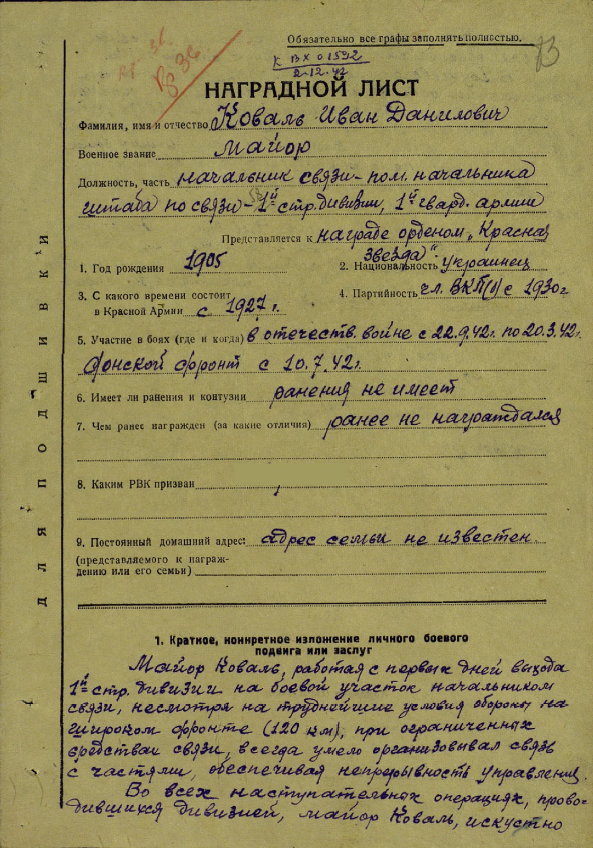 Обязательно все графы заполнять полностью.
К ВХ 01592
2.12.42
НАГРАДНОЙ ЛИСТ
Фамилия, имя и отчество Коваль Иван Данилович
Военное звание майор
Должность, часть начальник связи – пом. начальника
штаба по связи – 1й стр. дивизии, 1й гвард. армии
Представляется к награде орденом „Красная
звезда"
1. Год рождения 1905 2. Национальность украинец
3. С какого времени состоит
в Красной Армии с 1927 г.
4. Партийность чл. ВКП(б) с 1930 г
5. Участие в боях (где и когда) в отечеств. войне с 22.9.42 г. по 20.3.42.
Донской фронт с 10.7.42 г.
6. Имеет ли ранения и контузии ранения не имеет
7. Чем ранее награжден (за какие отличия) ранее не награждался
8. Каким РВК призван
9. Постоянный домашний адрес: адрес семьи не известен.
(представляемого к награж-
дению или его семьи)
1. Краткое, конкретное изложение личного боевого
подвига или заслуг
Майор Коваль, работая с первых дней выхода
1й стр. дивизии на боевой участок начальником
связи, несмотря на труднейшие условия обороны на
широком фронте (120 км), при ограниченных
средствах связи, всегда умело организовывал связь
с частями, обеспечивая непрерывность управления.
Во всех наступательных операциях, прово-
дившихся дивизией, майор Коваль, искустно
ДЛЯ ПОДШИВКИ